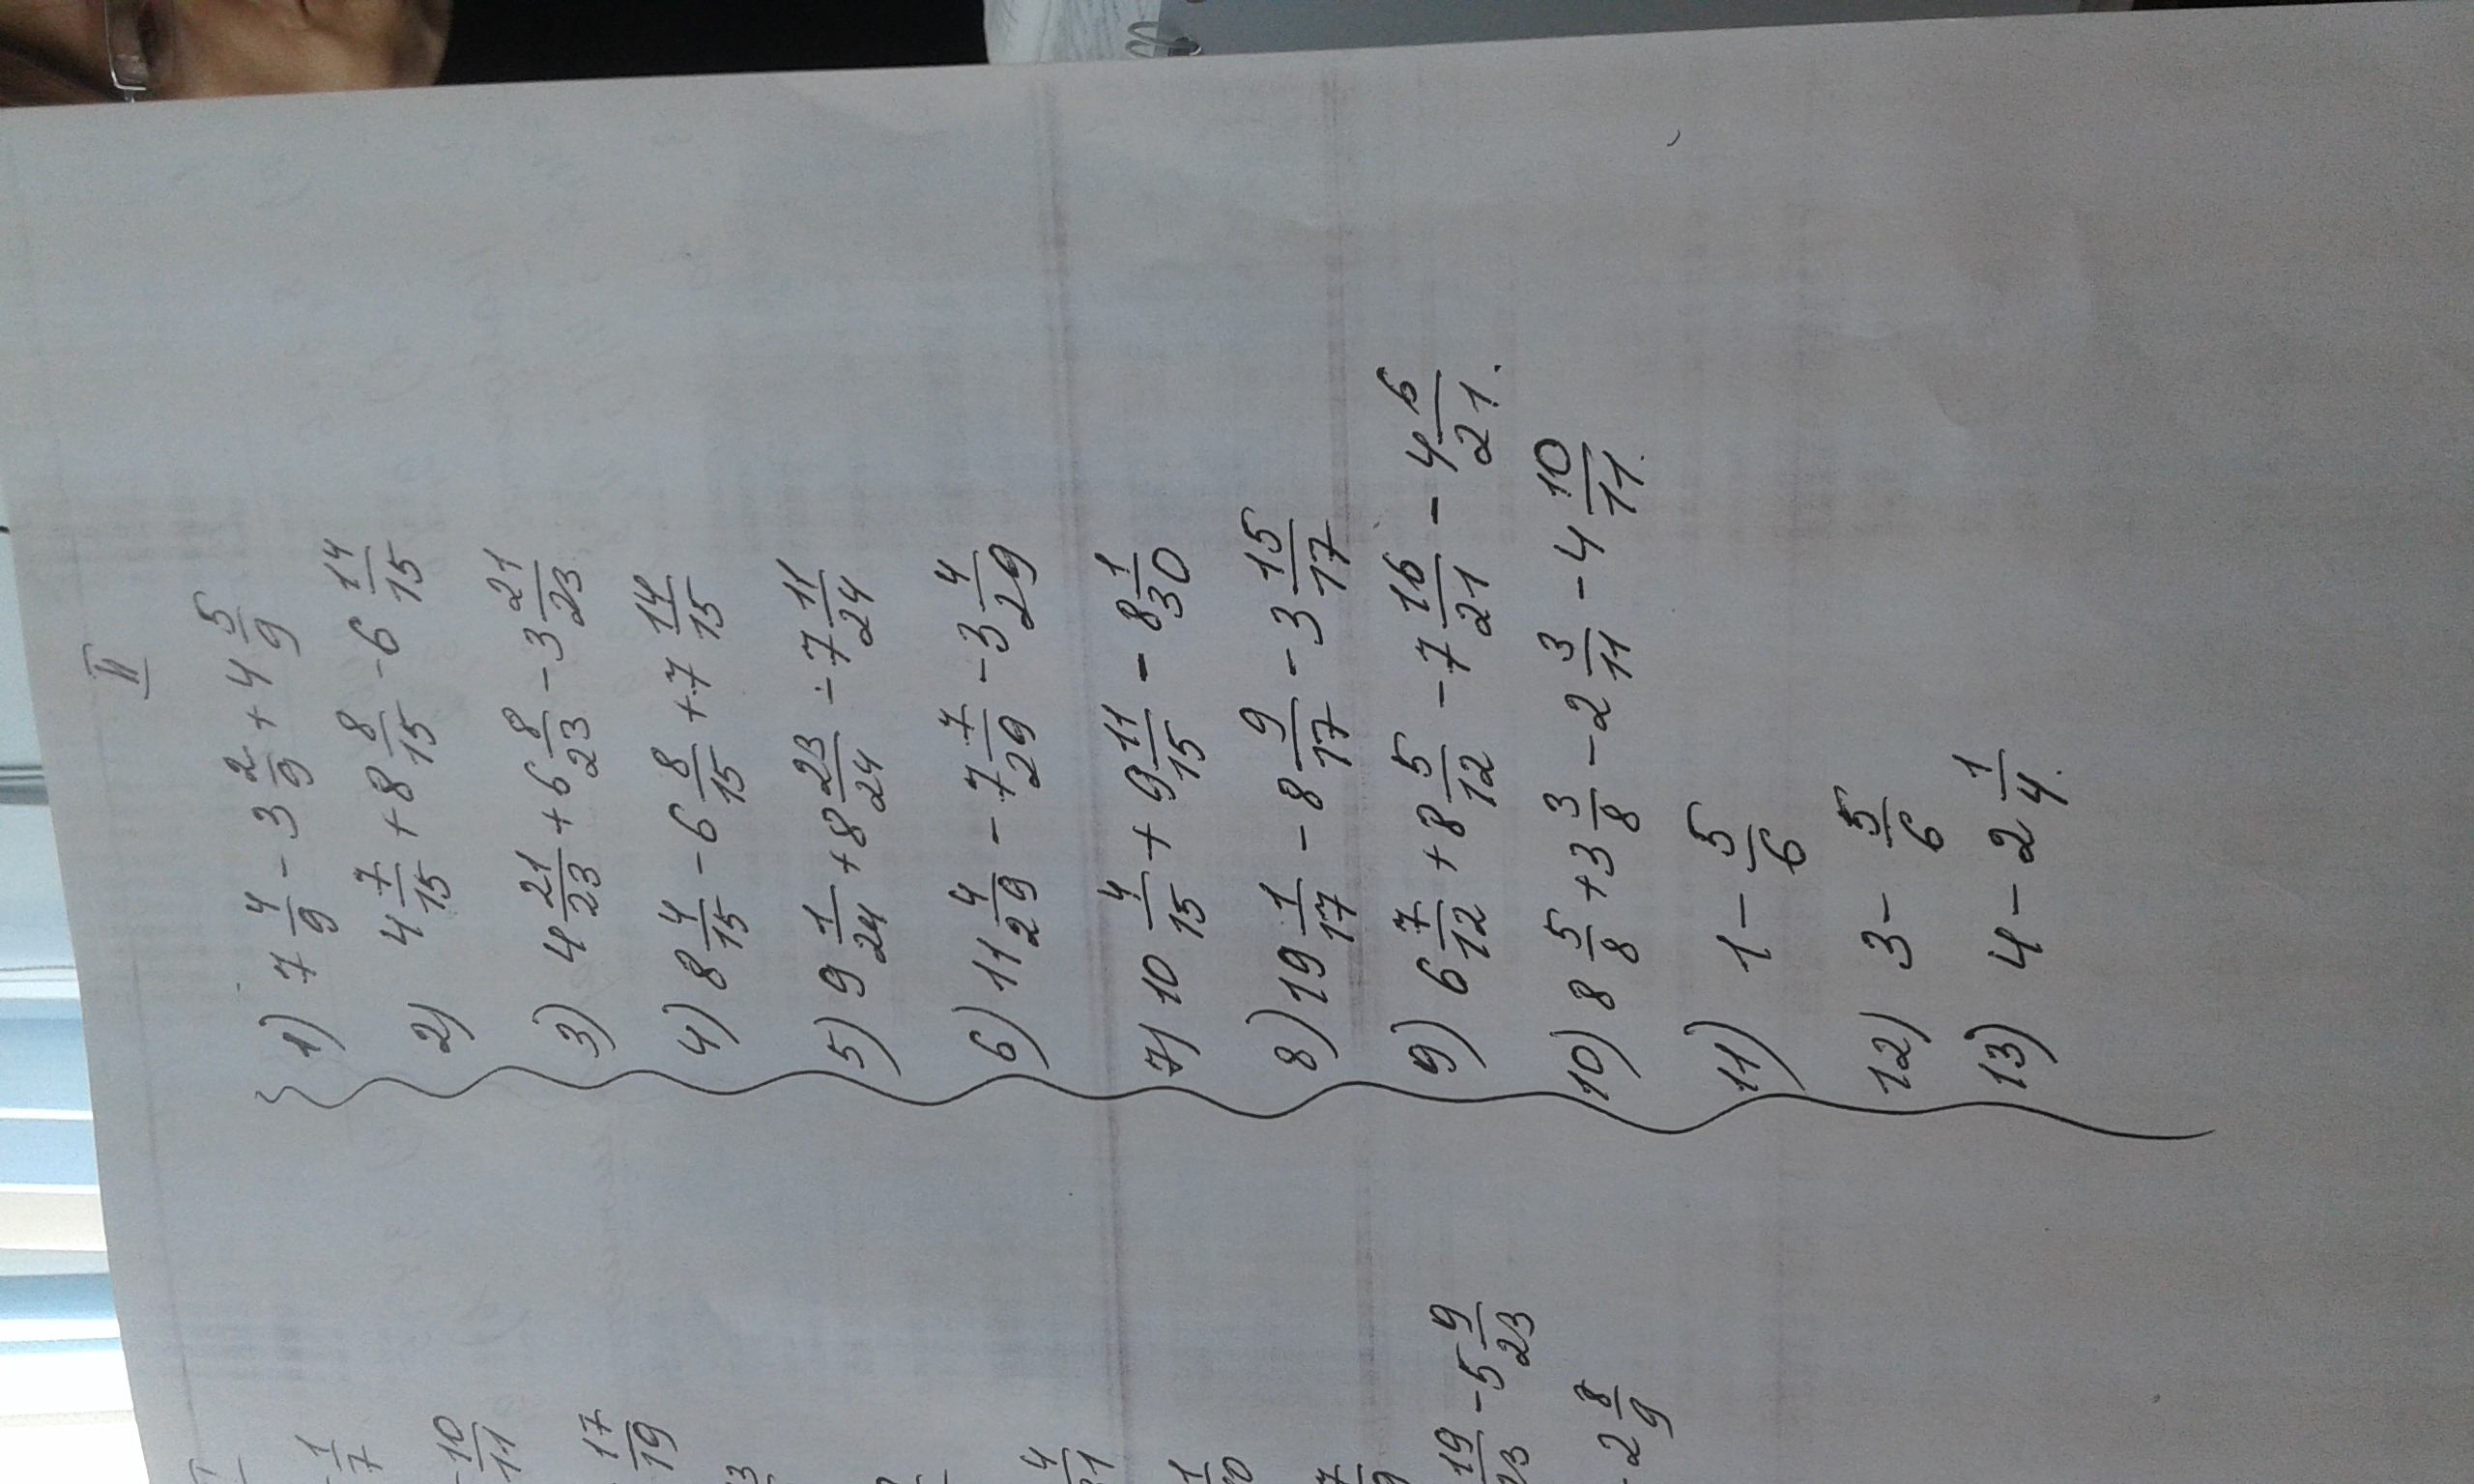 II
1) 7 4/9 - 3 2/9 + 4 5/9
2) 4 7/15 + 8 8/15 - 6 14/15
3) 4 21/23 + 6 8/23 - 3 21/23
4) 8 4/15 - 6 8/15 + 7 14/15
5) 9 1/24 + 8 23/24 - 7 11/24
6) 11 4/29 - 7 7/29 - 3 4/29
7) 10 4/15 + 9 11/15 - 8 1/30
8) 19 1/17 - 8 9/17 - 3 15/17
9) 6 7/12 + 8 5/12 - 7 16/21 - 4 5/21.
10) 8 5/8 + 3 3/8 - 2 3/11 - 4 10/11.
11) 1 - 5/6
12) 3 - 5/6
13) 4 - 2 1/4.
- 1/7
- 10/11
17/19
19/23 - 5 9/23
- 2 8/9